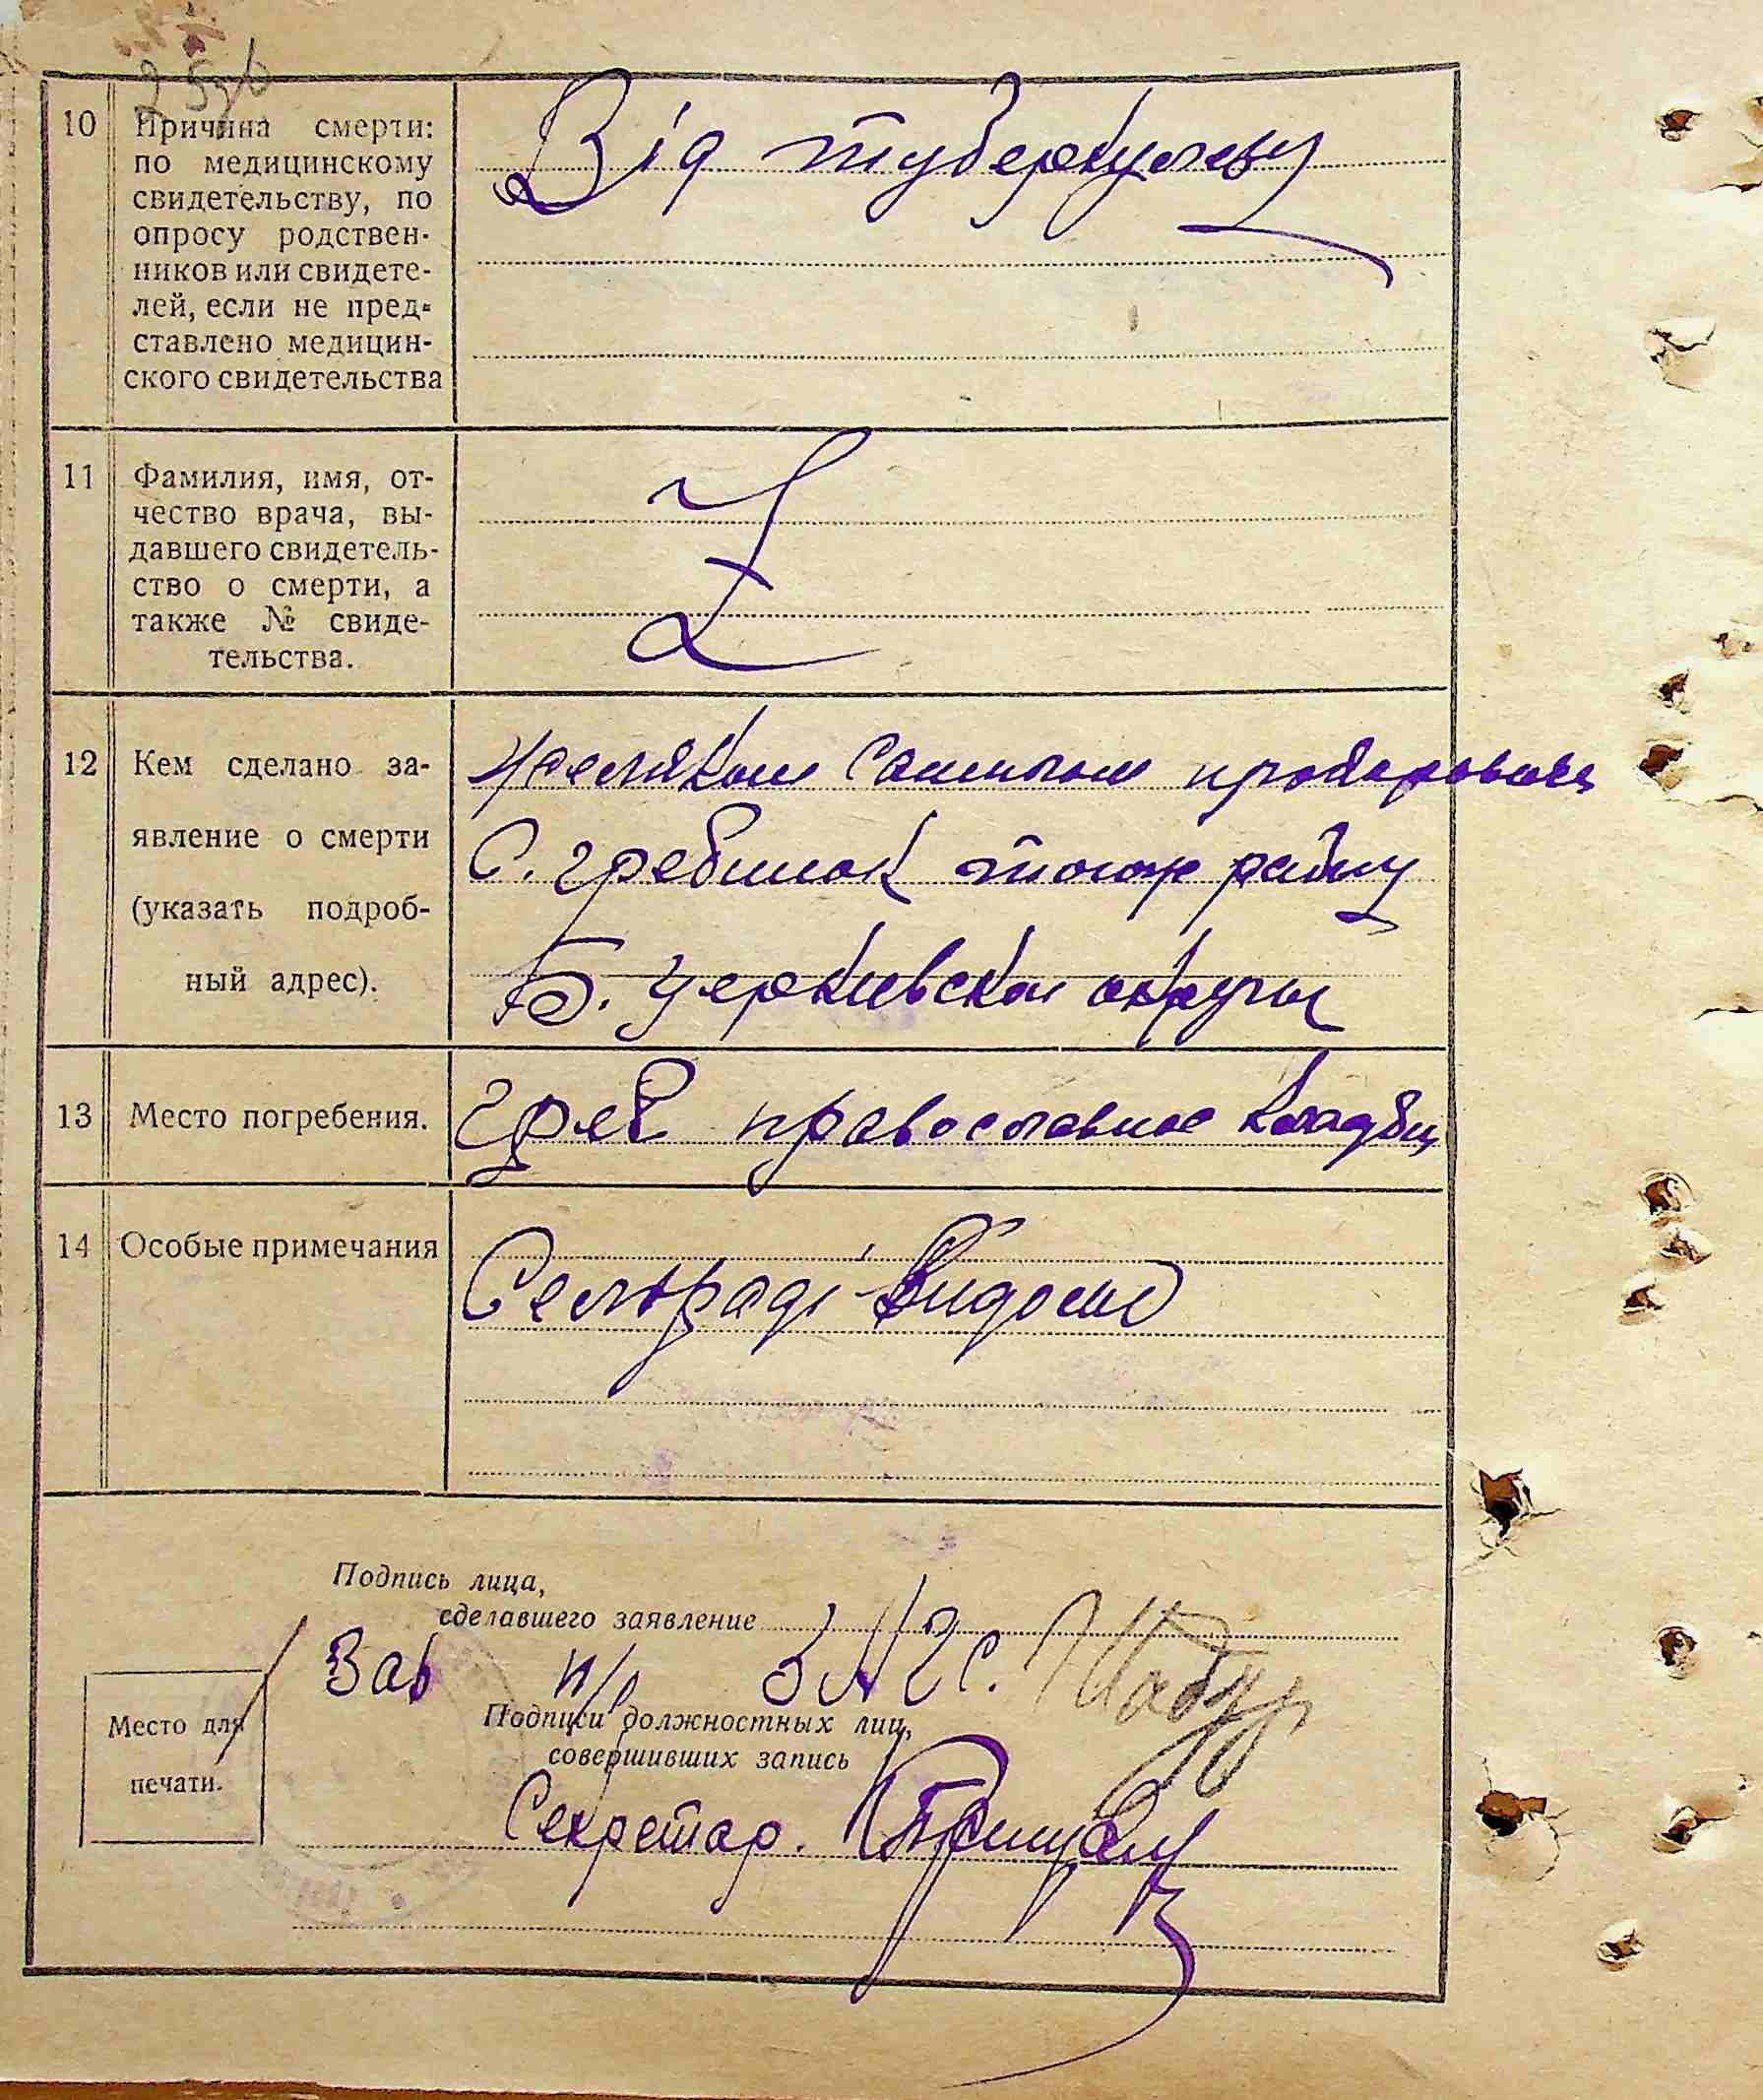 10 Причина смерти:
по медицинскому
свидетельству, по
опросу родствен-
ников или свидете-
лей, если не пред-
ставлено медицин-
ского свидетельства
Від туберкульозу
11 Фамилия, имя, от-
чество врача, вы-
давшего свидетель-
ство о смерти, а
также № свиде-
тельства.
12 Кем сделано за-
явление о смерти
(указать подроб-
ный адрес).
С. Гребінок того ж району
Б. Церківскои округи
13 Место погребения.
Греб православное кладбищ
14 Особые примечания
Сельраді Видомо
Подпись лица,
сделавшего заявление
Зав п/р ЗАГС.
Место для
печати.
Подписи должностных лиц,
совершивших запись
Секретар.